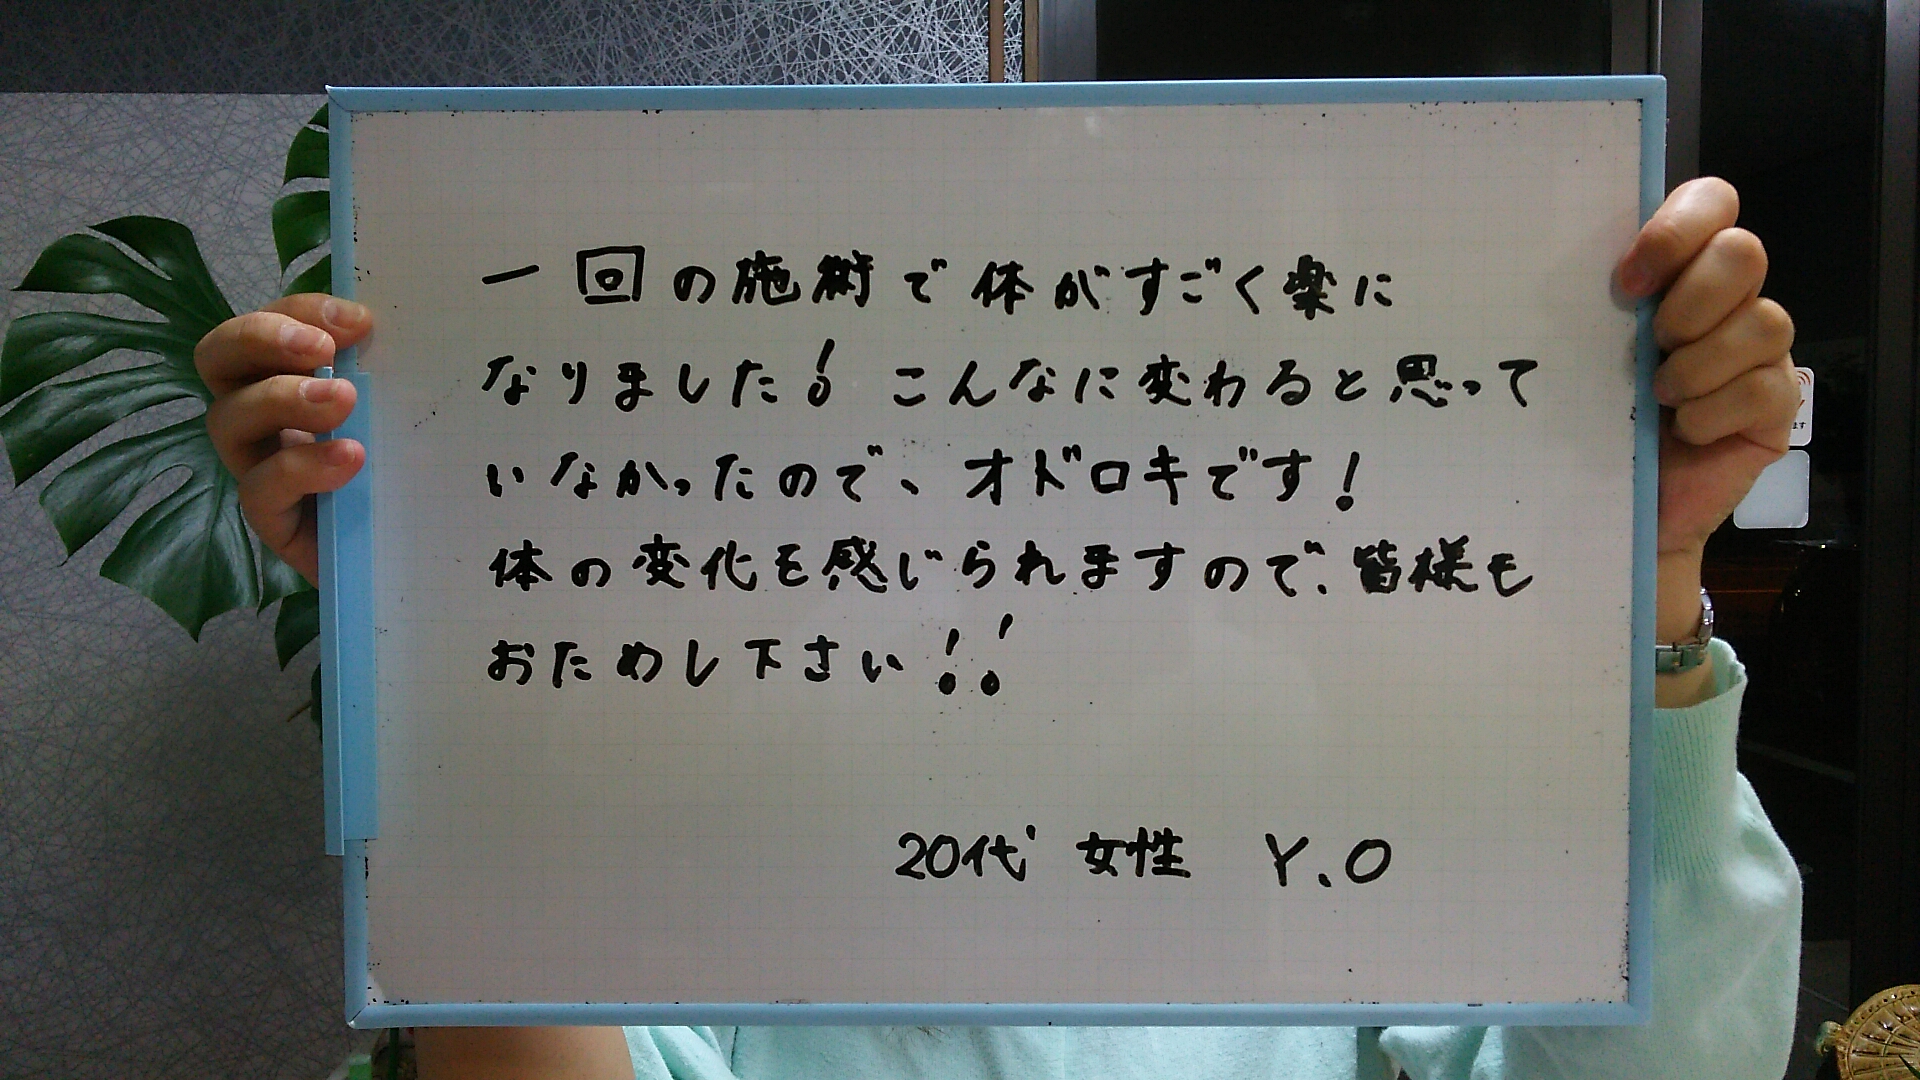 一回の施術で体がすごく楽に
なりました! こんなに変わると思って
いなかったので、オドロキです!
体の変化を感じられますので、皆様も
おためし下さい!!
20代 女性 Y.O
ます